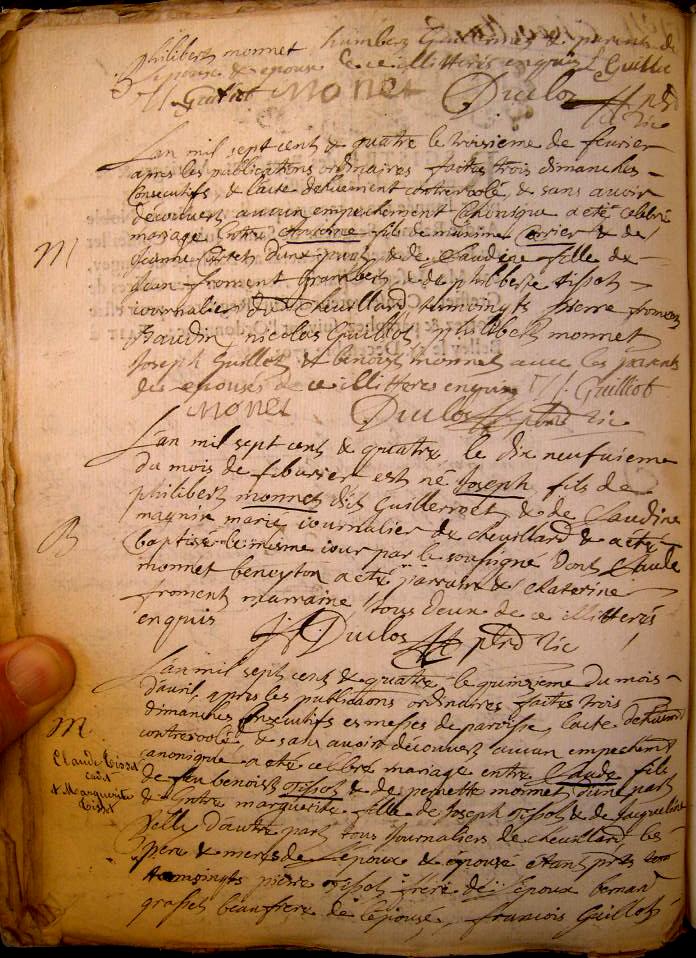 philibert monnet humbert Guillermet & parents de
l'epoux & epouse de ce illitteres enquis Guillot
J Guillot Monet Duclos ptre
vic
L'an mil sept cent & quatre le troisieme de feurier
apres les publications ordinaires faites trois dimanches
Consecutifs & l'acte deduement controrolé, & sans auoir
decouuert aucun empechement Canonique a eté celebré
M mariage entre Antoine fils de maxime Carrier & de
Jeanne d'une part, & de Claudine fille de
Jean froment & de philiberte tissot
iournalier de Cheuillard, temoingts pierre froment
nicolas Guillot, philibert monnet
Joseph Guillot & benoist monnet auec les parents
de epouse de ce illitteres enquis J. Guilliot
Monet Duclos ptre vic
L'an mil sept cent & quatre le dix neufuieme
du mois de feburier est né Joseph fils de
philibert monnet dit Guillermet & de Claudine
magnin mariés iournalier de cheuillard & a eté
B baptisé le mesme iour par le soussigné dont Claude
monnet beneyton a eté parrain & Chaterine
froment marraine tous deux de ce illitteres
enquis J. Duclos ptre vic
L'an mil sept cent & quatre le quinzieme du mois
d'auril apres les publications ordinaires faites trois
M dimanches consecutifs es messes de paroisse, l'acte deduement
controrolé, & sans auoir decouuert aucun empechement
Claude Tissot
cadet
& Marguerite
Tissot
canonique a eté celebre mariage entre Claude fils
de feu benoist Tissot & de pernette monnet d'une part
& Entre marguerite fille de Joseph Tissot & de Jaqueline
d'autre part tous Journaliers de cheuillard les
pere & meres de l'epoux & epouse etant
temoingts pierre Tissot frere de l'epoux bernard
grasset beaufrere de l'epouse, francois Guillot